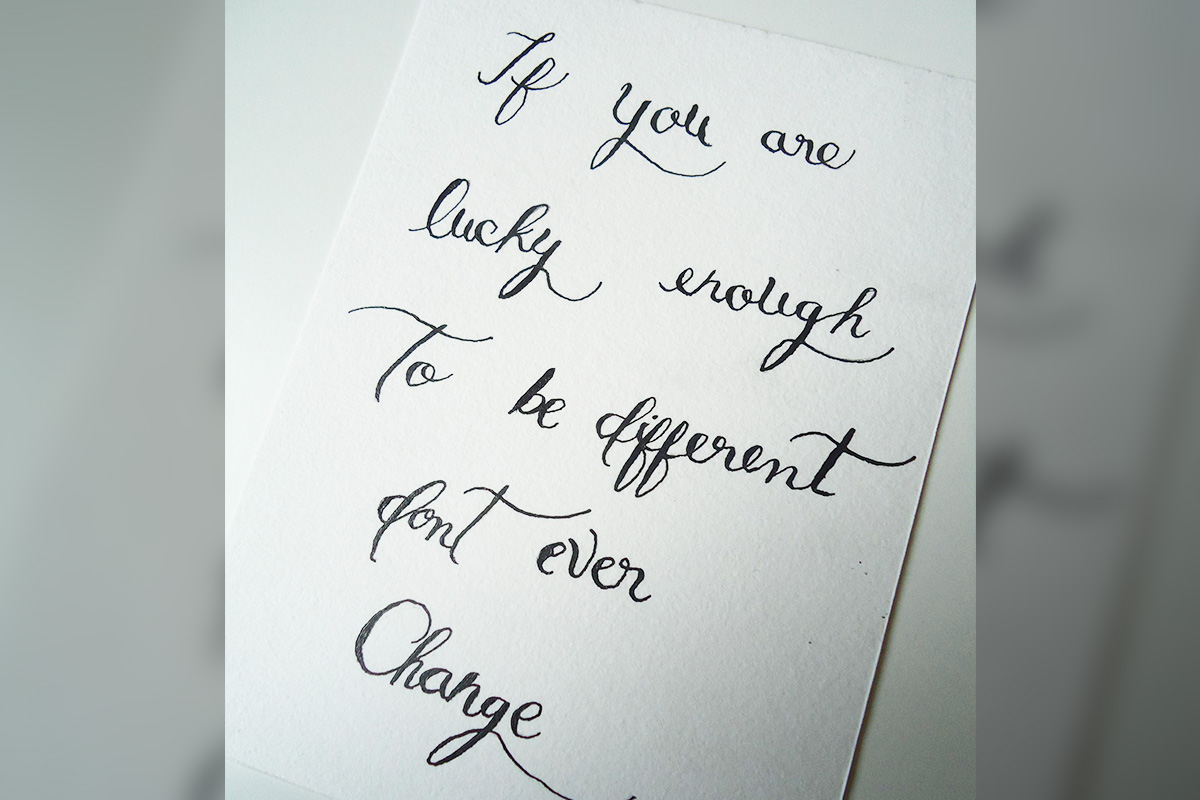 If you are
lucky enough
To be different
dont ever
Change